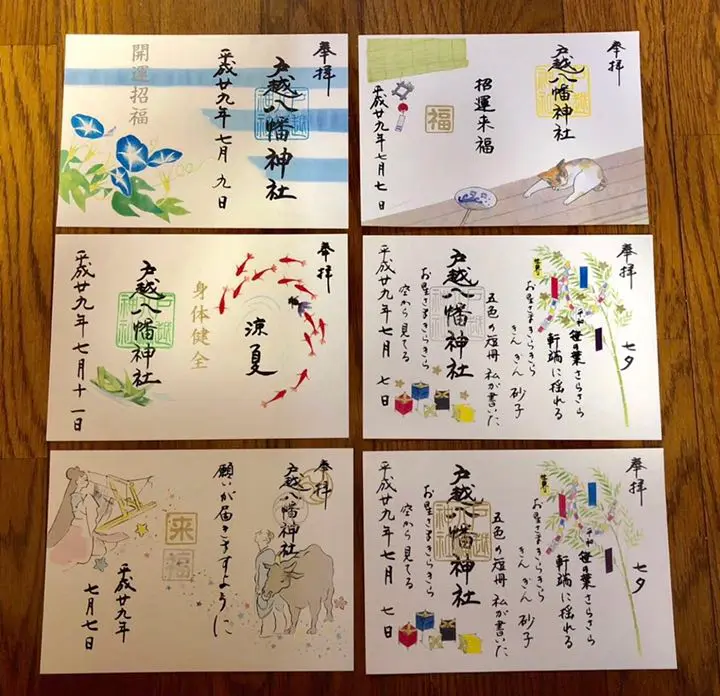 奉拝
戸越八幡神社
平成廿九年 七月 九日
開運招福
奉拝
戸越八幡神社
招運来福
福
平成廿九年七月七日
奉拝
涼夏
身体健全
戸越八幡神社
平成廿九年 七月十一日
奉拝
七夕
笹の葉さらさら
軒端に揺れる
平和
お星さまきらきら
きん ぎん 砂子
五色の短冊 私が書いた
戸越八幡神社
お星さまきらきら
空から見てる
平成廿九年 七月 七日
奉拝
戸越八幡神社
願いが届きますように
来福
平成廿九年
七月七日
奉拝
七夕
笹の葉さらさら
軒端に揺れる
平和
お星さまきらきら
きん ぎん 砂子
五色の短冊 私が書いた
戸越八幡神社
お星さまきらきら
空から見てる
平成廿九年 七月 七日